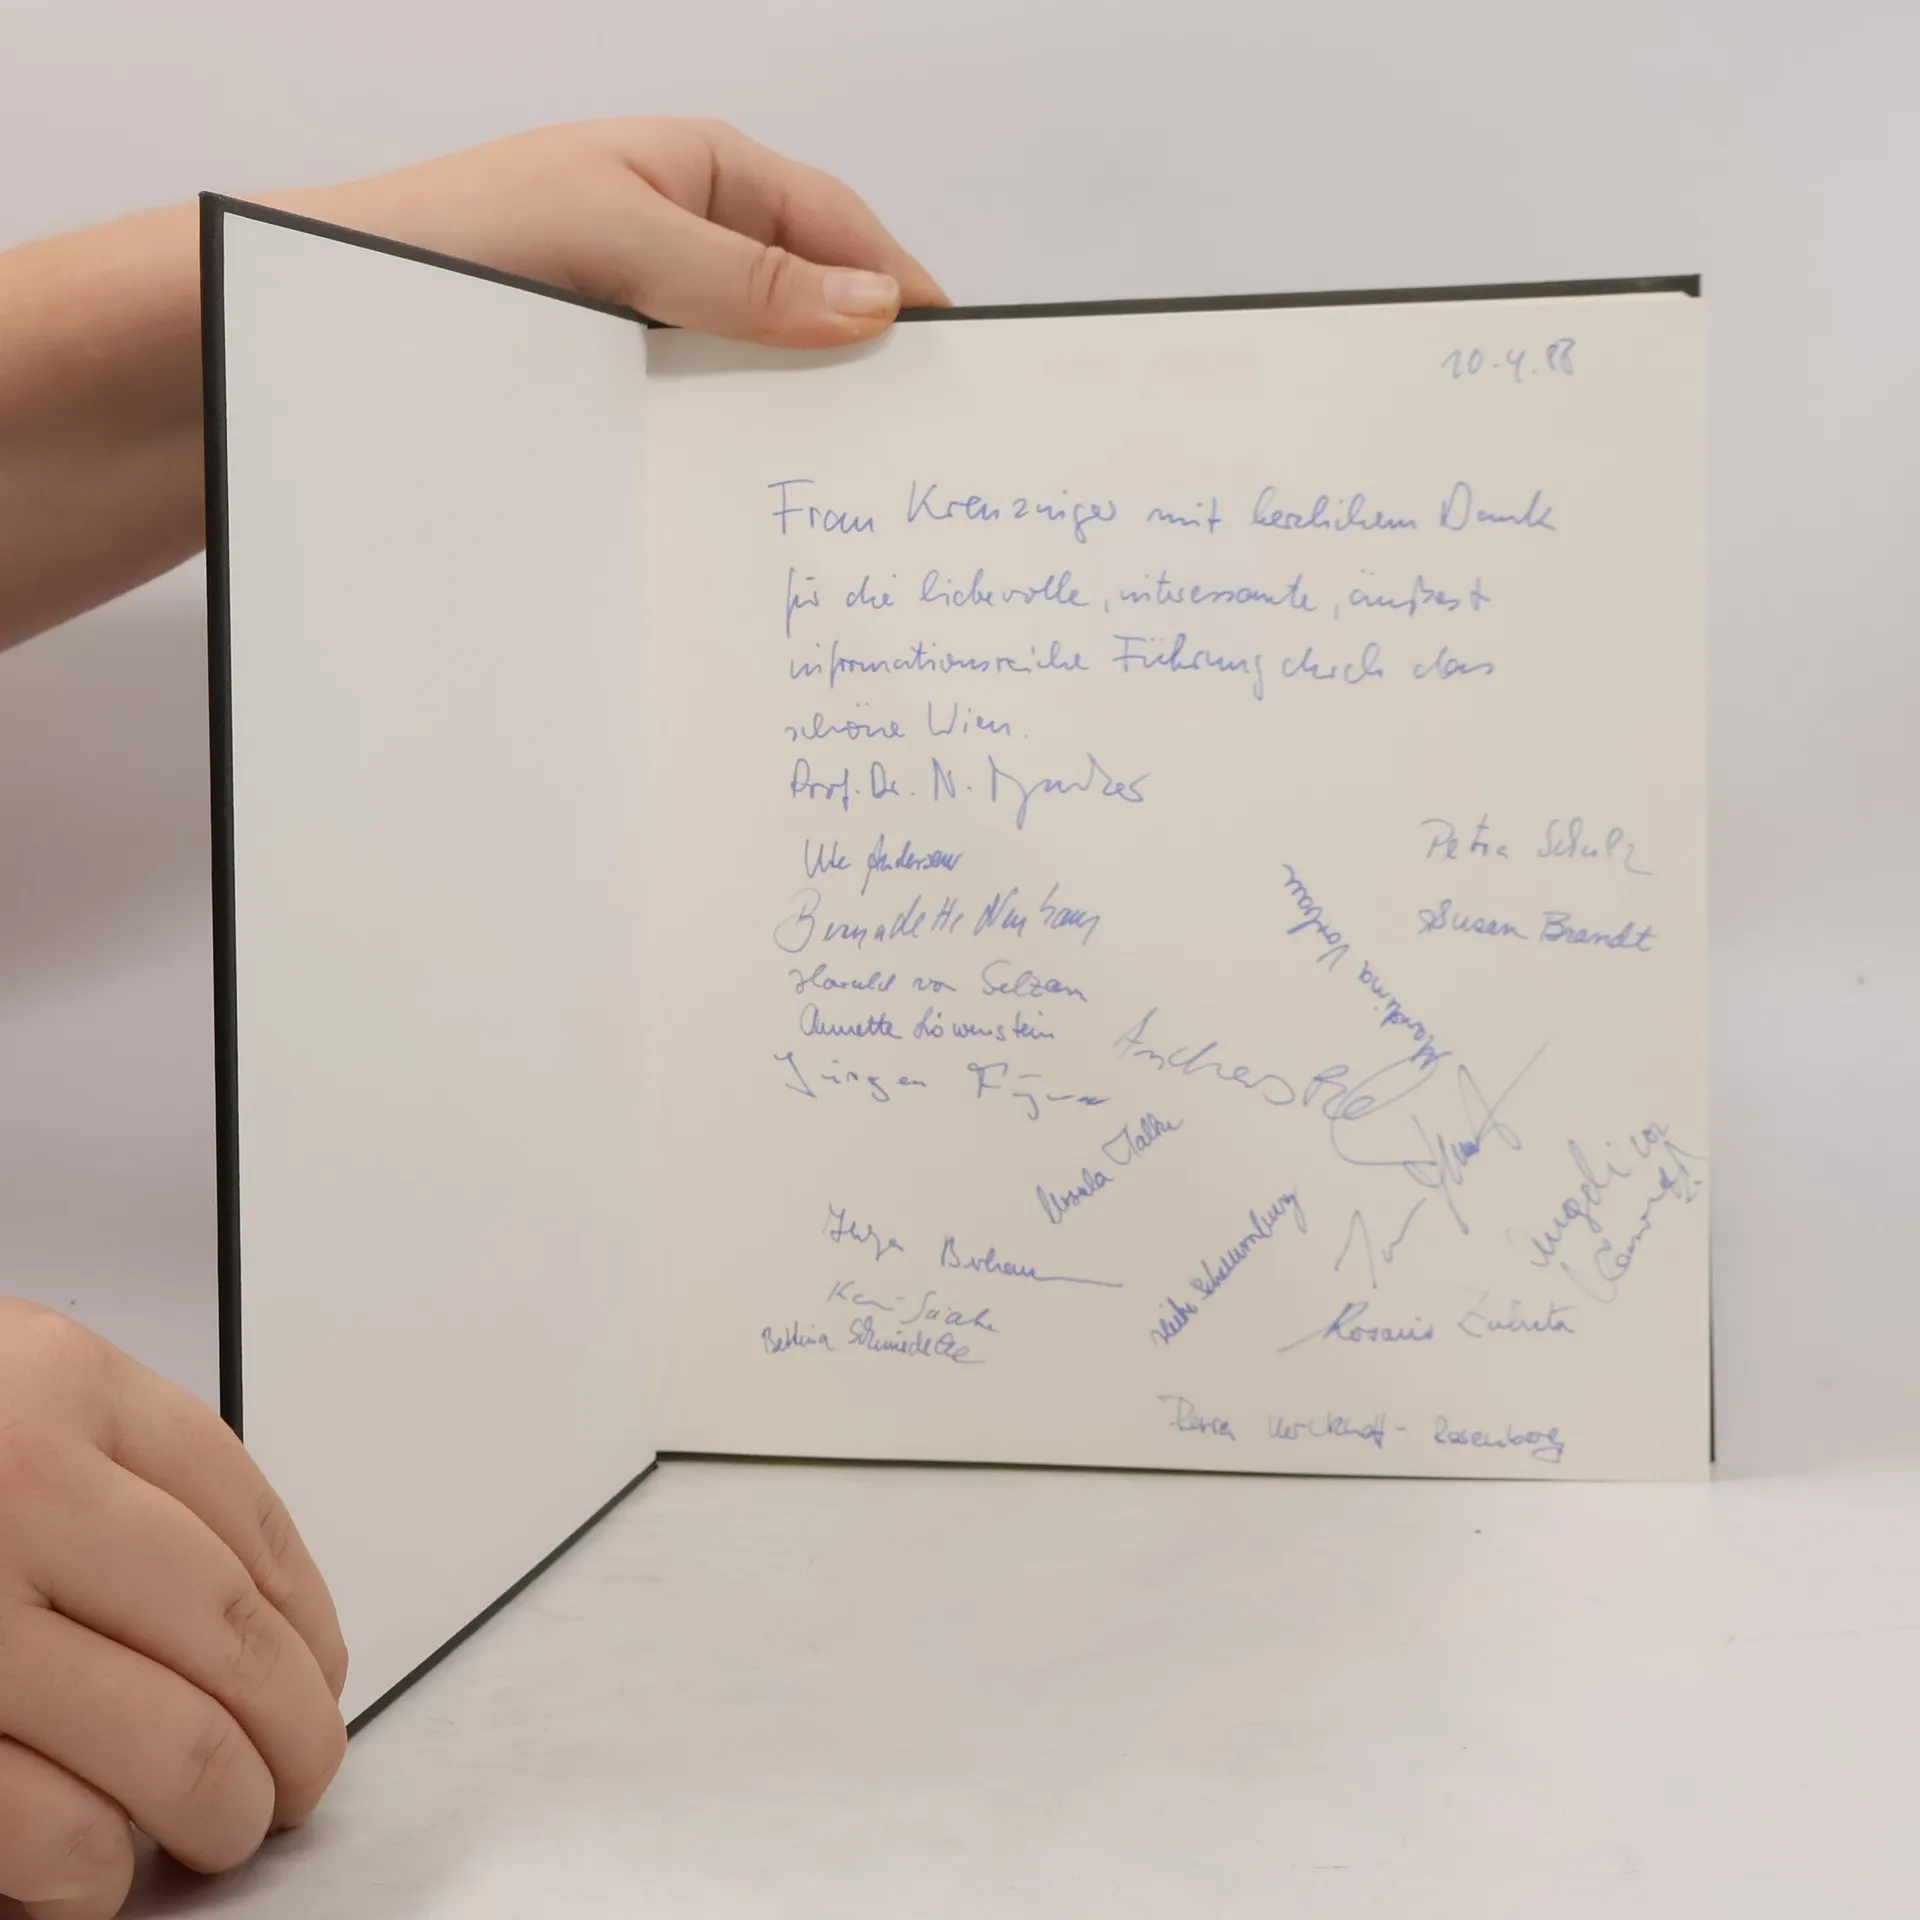 10.4.88
Frau Krenzinger mit herzlichem Dank
für die liebevolle, interessante, äußerst
informationsreiche Führung durch das
schöne Wien.
Prof. Dr. N.
Ute Andersen
Bernadette Neuhaus
Harald von Selzam
Annette Löwenstein
Jürgen
Petra Schulz
Susan Brandt
Martina
Andreas
Ursula Falke
Helga
Heike Schaumburg
Bettina Schmiedecke
Rosario Zubieta
Kerckhoff-Rosenberg